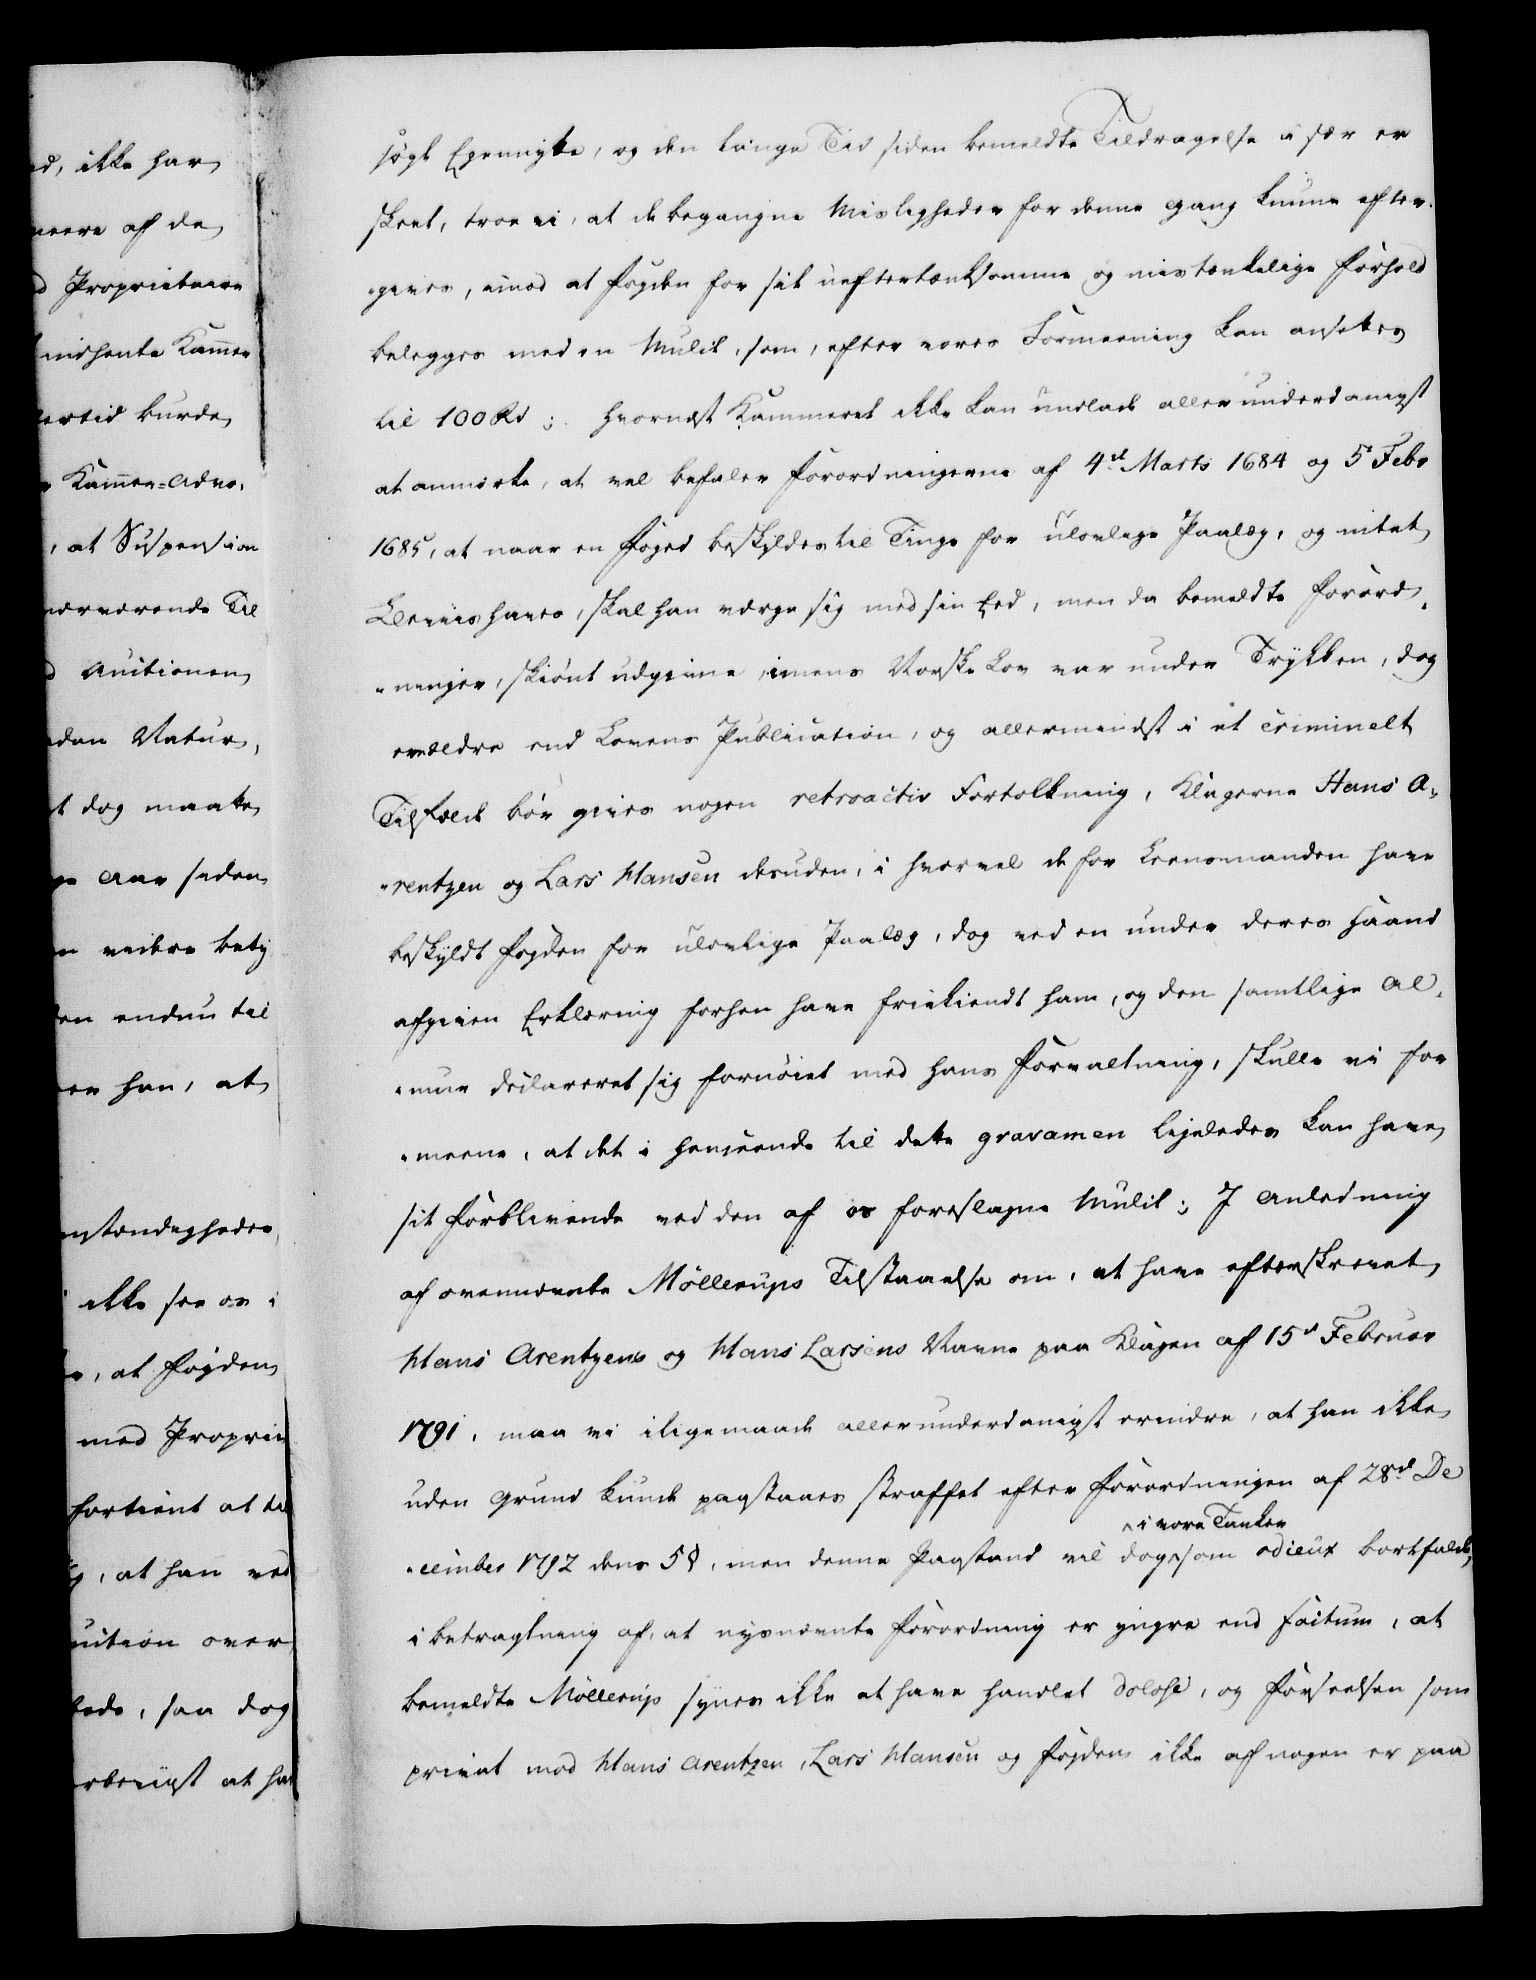 ed, ikke har
meere af de
d Proprietaire
indhente Kammer
ertid burde
r Kammer-Advo,
, at Suspension
nærværende Til
d Auctionen
adan Natur,
t dog maatte
ge Aar siden
n videre bety
den endnu til
er han, at
mstændigheder
ikke see os i
e, at Fogden
med Proprie
fortient at til
g, at han ved
uction over
bede, saa dog
rbevüst at ha
søgt Egennytte, og den lange Tid siden bemeldte Tildragelse i sær er
skeet, troe vi, at de begangne Misligheder for denne gang kunne efter-
-gives, imod at Fogden for sit uefterænksomme og mistænkelige Forhold
belegges med en Mulct, som, efter vores Formeening kan ansættes
til 100 Rd; hvornæst Kammeret ikke kan undlade allerunderdanigst
at anmærke, at vel befaler Forordningerne af 4de Marts 1684 og 5t Febr
1685, at naar en Foged beskyldes til Tinge for ulovlige Paalæg, og intet
Beviis haves, skal han værge sig med sin Eed, men da bemeldte Forord,
-ninger, skiønt udgivne, imens Norske Lov var under Trykken, dog
er ældre end Lovens Publication, og allermindst i et criminelt
Tilfælde bør gives nogen retroactiv Fortolkning, Klagerne Hans A,
-rentzen og Lars Hansen desuden, i hvorvel de for Leensmanden have
beskyldt Fogden for ulovlige Paalæg, dog ved en under deres Haand
afgiven Erklæring forhen have frikiendt ham, og den samtlige Al,
-mue declareret sig fornøiet med hans Forvaltning, skulle vi for
-meene, at det i Henseende til dette gravamen ligeledes kan have
sit Forblivende ved den af os foreslagne Mulct; I Anledning
af ovennævnte Möllerups Tilstaaelse om, at have efterskrevet
Hans Arentzens og Hans Larsens Navne paa Klagen af 15d Februar
1791, maa vi iligemaade allerunderdanigst erindre, at han ikke
uden Grund kunde paastaaes straffet efter Forordningen af 28de De
-cember 1792 dens 5 §, men denne Paastand vil dog ^ i vore Tanker som odieux bortfalde,
i betragtning af, at nysnævnte Forordning er yngre end factum, at
bemeldte Möllerup synes ikke at have handlet dolose, og Forseelsen som
privat mod Hans Arentzen, Lars Hansen og Fogden ikke af nogen er paa